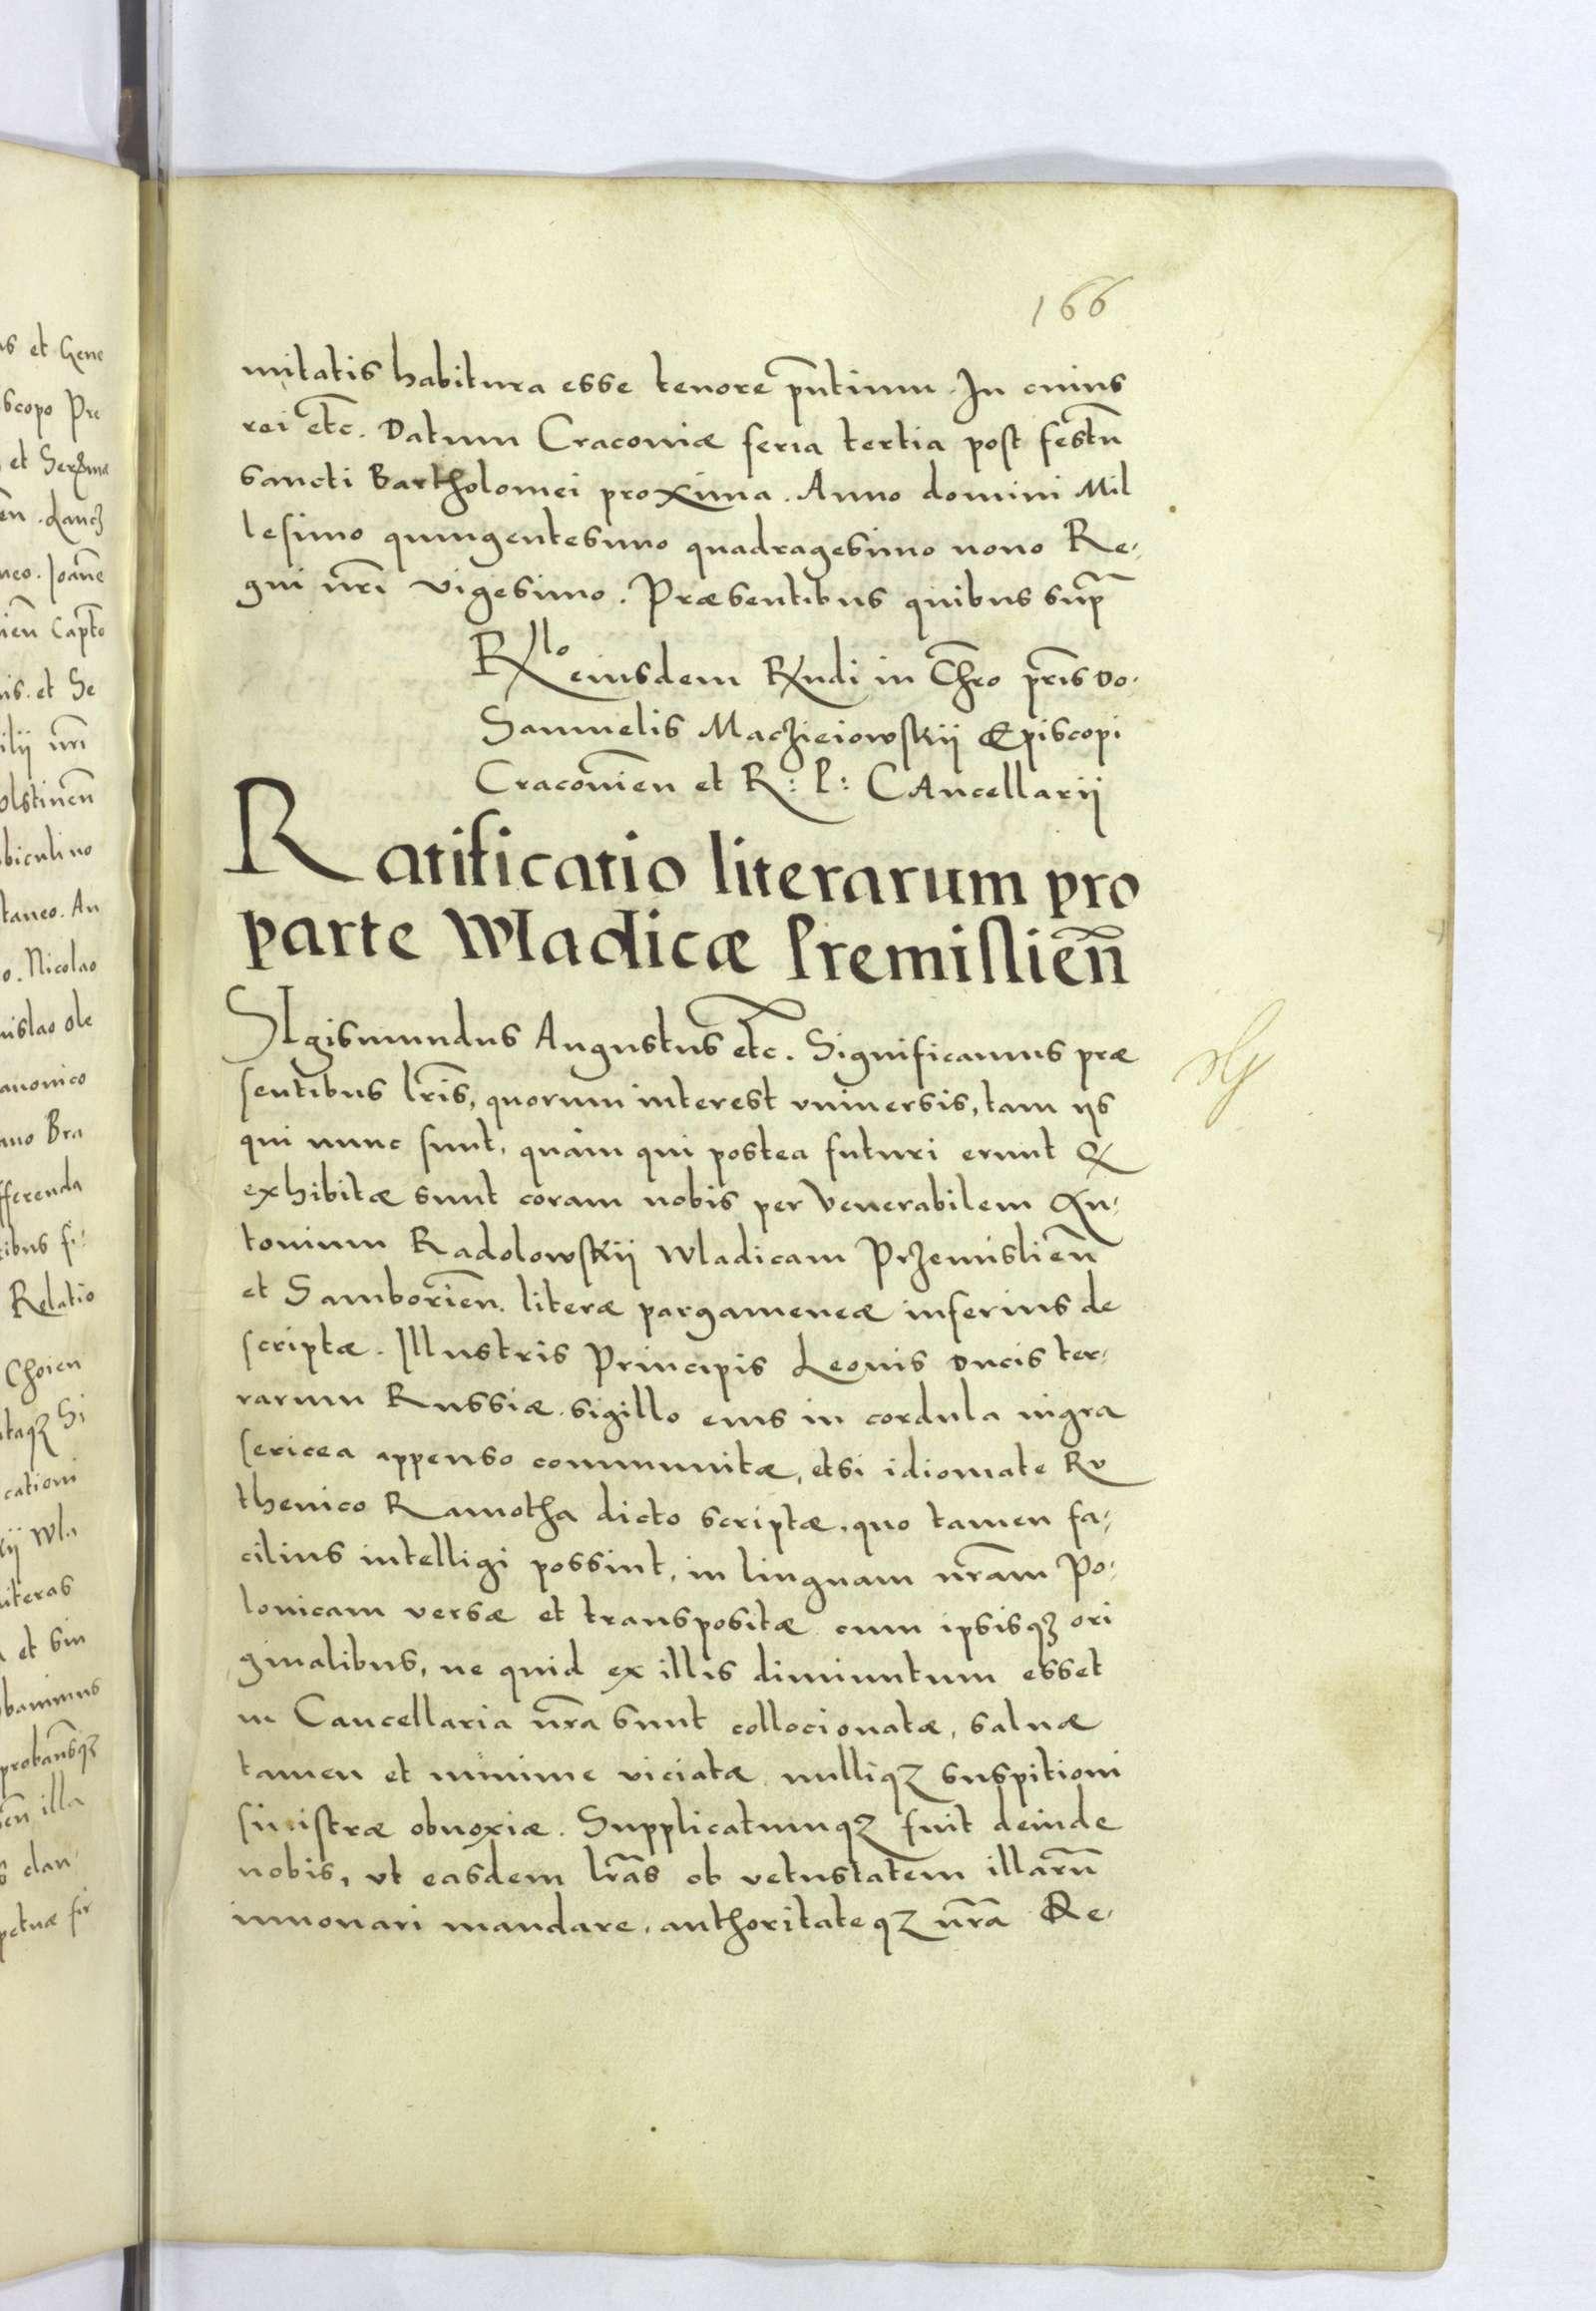 166
mitatis habitura esse tenore pñtium. In cuius
rei etc̃. Datum Cracoviæ feria tertia post festũ
sancti Bartholomei proxima. Anno domini Mil
lesimo quingentesimo quadragesimo nono Re-
gni nr̃i vigesimo. Præsentibus quibus supr̃
Rllo eiusdem Rndi in Chr̃o pr̃is Do.
Samuelis Maczieiowskii Episcopi
Cracovień et R: P: CAncellarii
Ratificatio literarum pro
parte Wladicæ Premislień
SIgismundus Augustus etc̃. Significamus præ
sentibus lr̃is, quorum interest vniuersis, tam iis
qui nunc sunt, quàm qui postea futuri erunt Q
exhibitæ sunt coram nobis per Venerabilem An-
tonium Radolowskii Wladicam Przemislień
et Samborień. literæ pargameneæ inferius de
scriptæ. Illustris Principis Leonis Ducis ter-
rarum Russiæ. sigillo eius in cordula nigra
sericea appenso communitæ, etsi idiomate Ru
thenico Ramotha dicto scriptæ, quo tamen fa-
cilius intelligi possint, in linguam nr̃am Po-
lonicam versæ et transpositæ cum ipsisqz ori
ginalibus, ne quid ex illis diminutum esset
in Cancellaria nr̃a sunt collocionatæ, saluæ
tamen et minime viciatæ nulliqz suspitioni
sinistræ obnoxiæ. Supplicatumqz fuit deinde
nobis, vt easdem lr̃as ob vetustatem illarũ
innouari mandare, authoritateqz nr̃a Re-